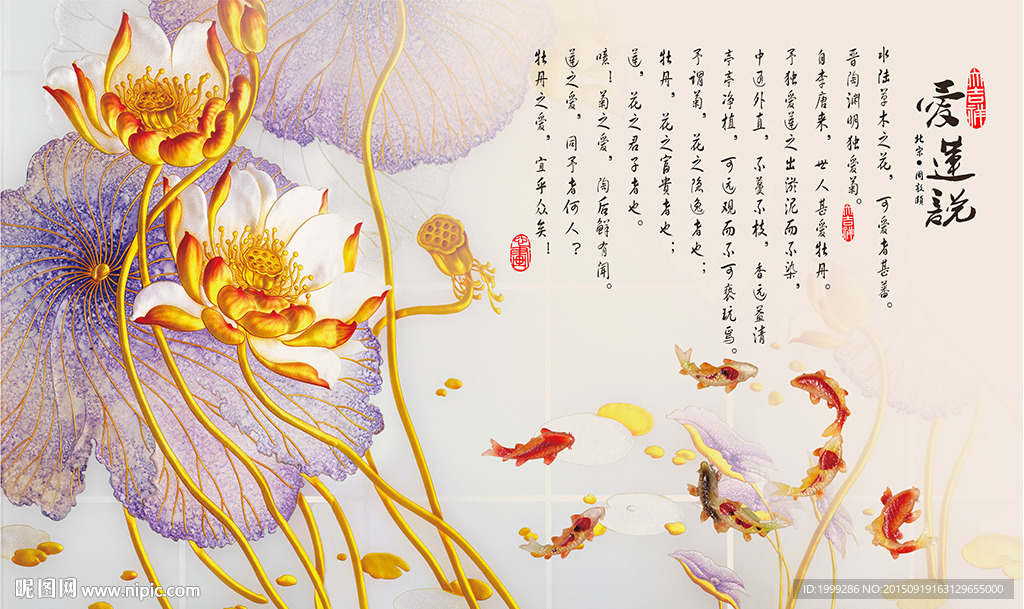 愛蓮說
北宋·周敦颐
水陆草木之花，可爱者甚蕃。
晋陶渊明独爱菊。
自李唐来，世人甚爱牡丹。
予独爱莲之出淤泥而不染，
中通外直，不蔓不枝，香远益清
亭亭净植，可远观而不可亵玩焉。
予谓菊，花之隐逸者也；
牡丹，花之富贵者也；
莲，花之君子者也。
噫！菊之爱，陶后鲜有闻。
莲之爱，同予者何人？
牡丹之爱，宜乎众矣！
昵图网 www.nipic.com
ID:1999286 NO:20150919163129655000